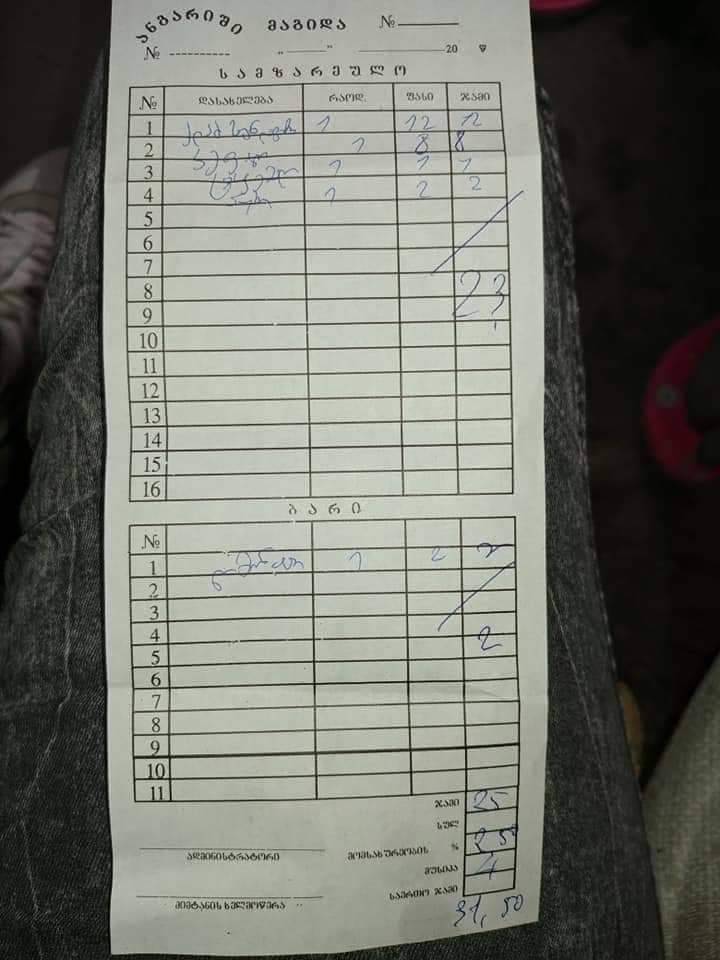 ანგარიში მაგიდა №
№ „ “ 20 წ
სამზარეულო
№ დასახელება რაოდ. ფასი ჯამი
1 კლაბ სენდვიჩი 1 12 12
2 1 8 8
3 1 1 1
4 1 2 2
5
6
7
8 23
9
10
11
12
13
14
15
16
ბარი
№
1 1 2 2
2
3
4
5 2
6
7
8
9
10
11
ჯამი 25
სულ
მომსახურეობის % 2 50
მუსიკა 4
საერთო ჯამი
31,50
ადმინისტრატორი
მიმტანის ხელმოწერა